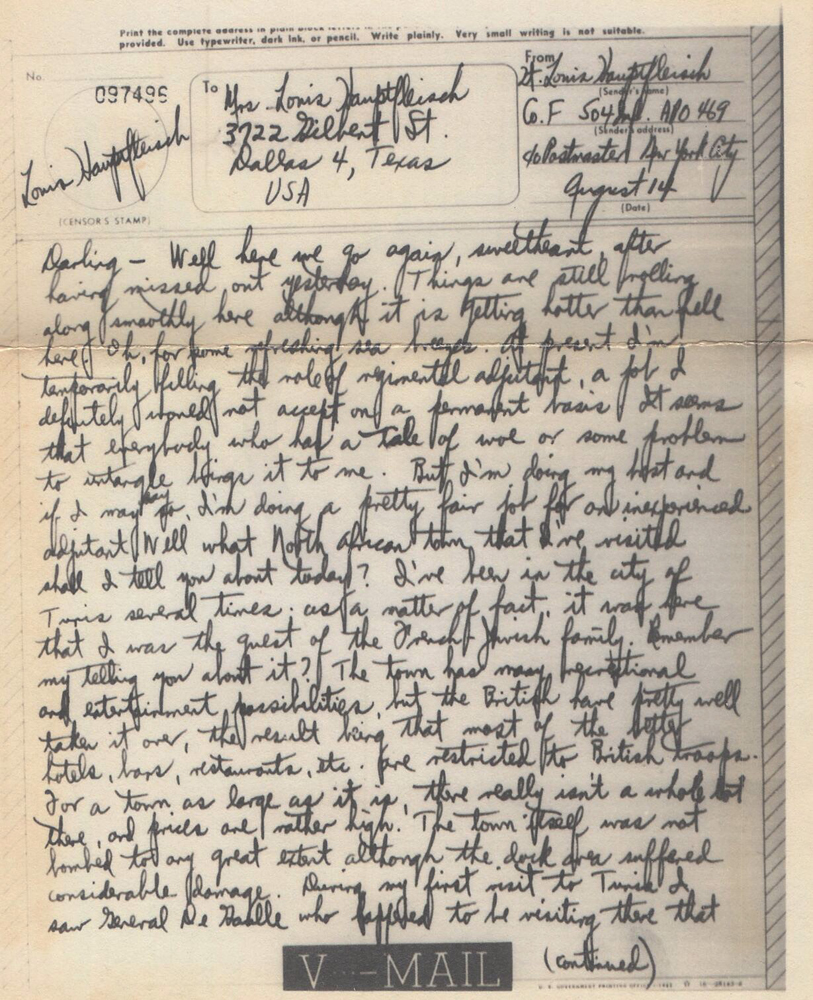 Print the complete address in plain block letters in the
provided. Use typewriter, dark ink, or pencil. Write plainly. Very small writing is not suitable.
No.
097496
Louis Hauptfleisch
(CENSOR'S STAMP)
To
Mrs. Louis Hauptfleisch
3722 Gilbert St.
Dallas 4, Texas
USA
From
Lt. Louis Hauptfleisch
(Sender's name)
Co. F 504 APO 469
(Sender's address)
c/o Postmaster New York City
August 14
(Date)
Darling – Well here we go again, sweetheart, after
having missed out yesterday. Things are still rolling
along smoothly here although it is getting hotter than hell
here. Oh, for some refreshing sea breezes. At present I'm
temporarily filling the role of regimental adjutant, a job I
definitely would not accept on a permanent basis. It seems
that everybody who has a tale of woe or some problem
to untangle brings it to me. But, I'm doing my best and
if I may say so, I'm doing a pretty fair job for an inexperienced
adjutant. Well what North African town that I've visited
shall I tell you about today? I've been in the city of
Tunis several times. as a matter of fact, it was here
that I was the guest of the French Jewish family. Remember
my telling you about it? The town has many recreational
and entertainment possibilities, but the British have pretty well
taken it over, the result being that most of the better
hotels, bars, restaurants, etc. are restricted to British troops.
For a town as large as it is, there really isn't a whole lot
there, and prices are rather high. The town itself was not
bombed to any great extent although the dock area suffered
considerable damage. During my first visit to Tunis I
saw General De Gaulle who happened to be visiting there that
(continued)
V···–MAIL
U. S. GOVERNMENT PRINTING OFFICE